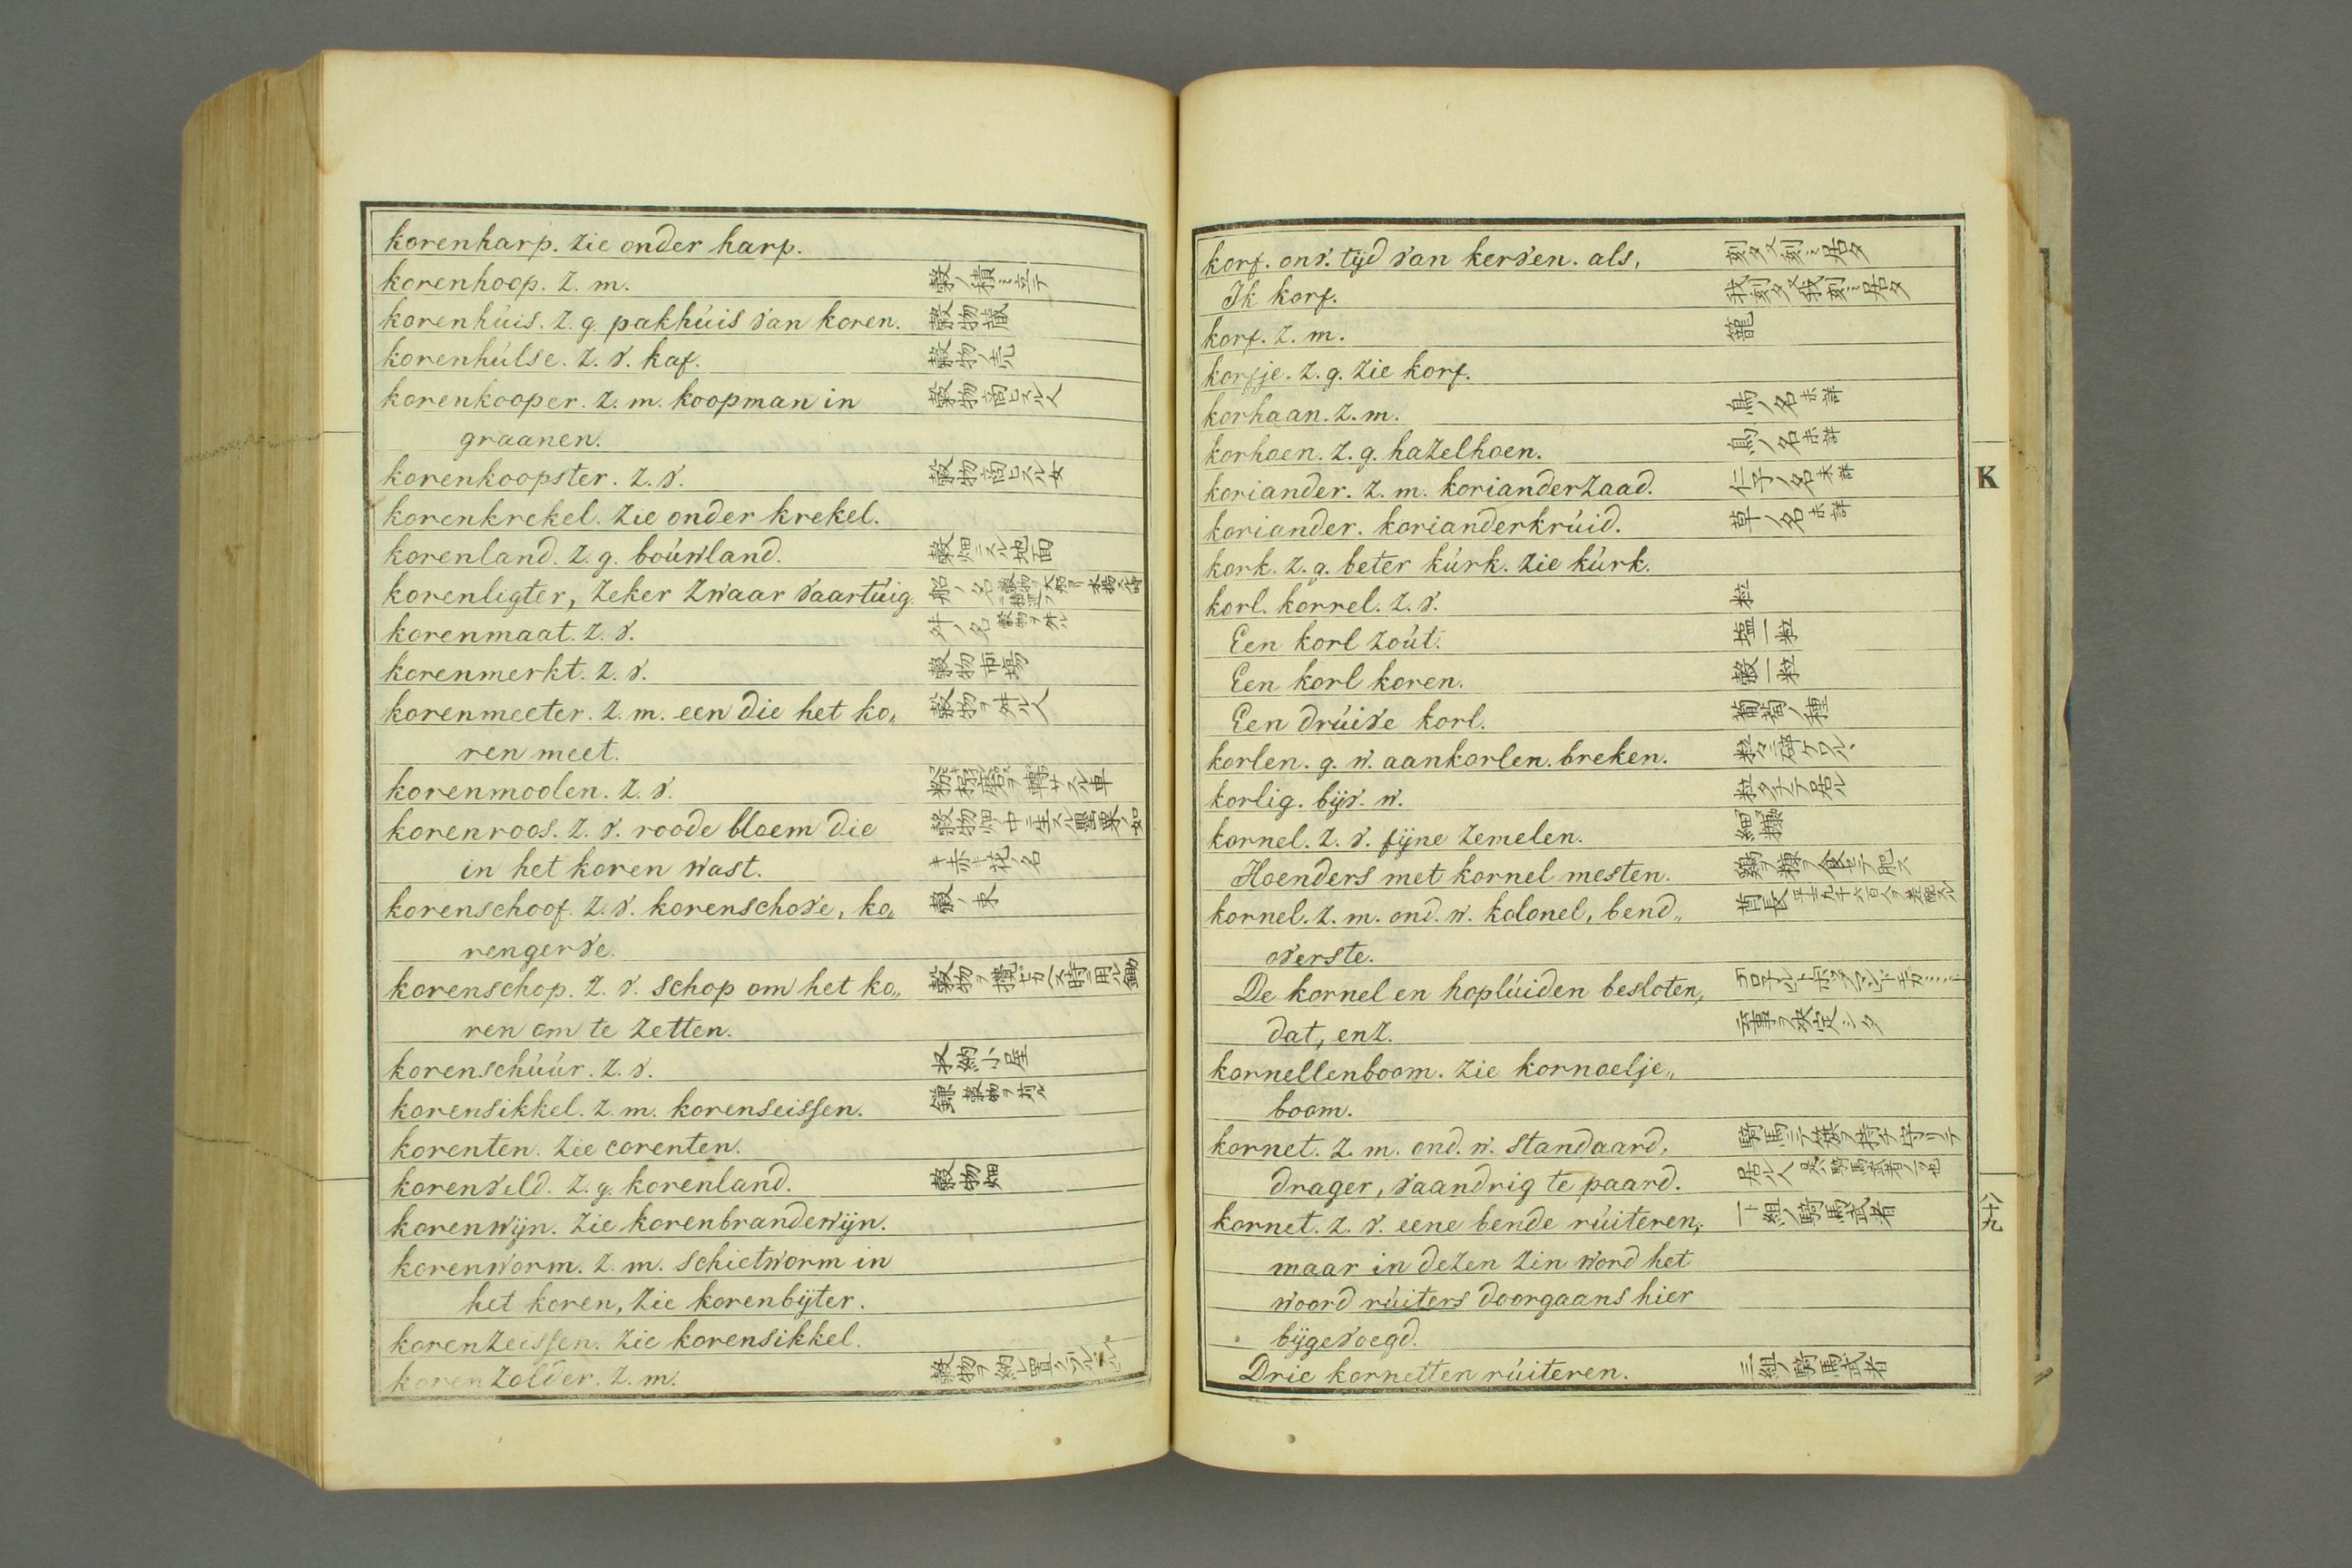 korenharp. zie onder harp.
korenhoop. z. m. 穀ノ積ミ立テ
korenhúis. z. g. pakhúis van koren. 穀物蔵
korenhúlse. z. v. kaf. 穀物ノ売
korenkooper. z. m. koopman in 穀物商ヒスル人
graanen.
korenkoopster. z. v. 穀物商ヒスル女
korenkrekel. zie onder krekel.
korenland. z. g. boúwland. 穀畑ニスル地面
korenligter, zeker zwaar vaartúig. 船ノ名
korenmaat. z. v. 舛ノ名 穀物ヲ舛ル
korenmerkt. z. v. 穀物市場
korenmeeter. z. m. een die het ko„ 穀物ヲ舛ル人
ren meet.
korenmoolen. z. v. 磨ヲ轉サスル車
korenroos. z. v. roode bloem die 穀物畑ノ中ニ生スル罌粟ノ如
in het koren wast. キ赤キ花ノ名
korenschoof. z. v. korenschove, ko„ 穀ノ束
rengerve.
korenschop. z. v. schop om het ko„ 穀物ヲ時ニ用ル鋤
ren om te zetten.
korenschúúr. z. v. 収納小屋
korensikkel. z. m. korenseissen. 鎌 穀物ヲ刈ル
korenten. zie corenten.
korenveld. z. g. korenland. 穀物畑
korenwijn. zie korenbrandewijn.
korenworm. z. m. schietworm in
het koren, zie korenbijter.
korenzeissen. zie korensikkel.
korenzolder. z. m. 穀物ヲ納レ置ク
korf. onv. tijd van kerven. als, 刻タ又刻ミ居タ
Ik korf. 我刻タ又我刻ミ居タ
korf. z. m. 籠
korfje. z. g. zie korf.
korhaan. z. m. 鳥ノ名未詳
korhoen. z. g. hazelhoen. 鳥ノ名未詳
koriander. z. m. korianderzaad. 仁子ノ名未詳
koriander. korianderkrúid. 草ノ名未詳
kork. z. g. beter kúrk. zie kúrk.
korl. korrel. z. v. 粒
Een korl zoút. 塩一粒
Een korl koren. 穀一粒
Een drúive korl. 葡萄ノ種
korlen. g. w. aankorlen. breken. 粒々ニ碎ク
korlig. bijv. w. 粒タチテ居ル
kornel. z. v. fijne zemelen. 細糠
Hoenders met kornel mesten. 鶏ヲ糠ヲ食セテ肥ス
kornel. z. m. ond. w. kolonel, bend„ 酋長
overste.
De kornel en hoplúiden besloten,
dat, enz. 事ヲ決定シタ
kornellenboom. zie kornoelje„
boom.
kornet. z. m. ond. w. standaard, 騎馬ニテ籏ヲ持チ守リテ
drager, vaandrig te paard. 居ル人 是ハ騎馬武者ノ一也
kornet. z. v. eene bende rúiteren, 一ト組ノ騎馬武者
maar in dezen zin word het
woord rúiters doorgaans hier
bijgevoegd.
Drie kornetten rúiteren. 三組ノ騎馬武者
K
八十九